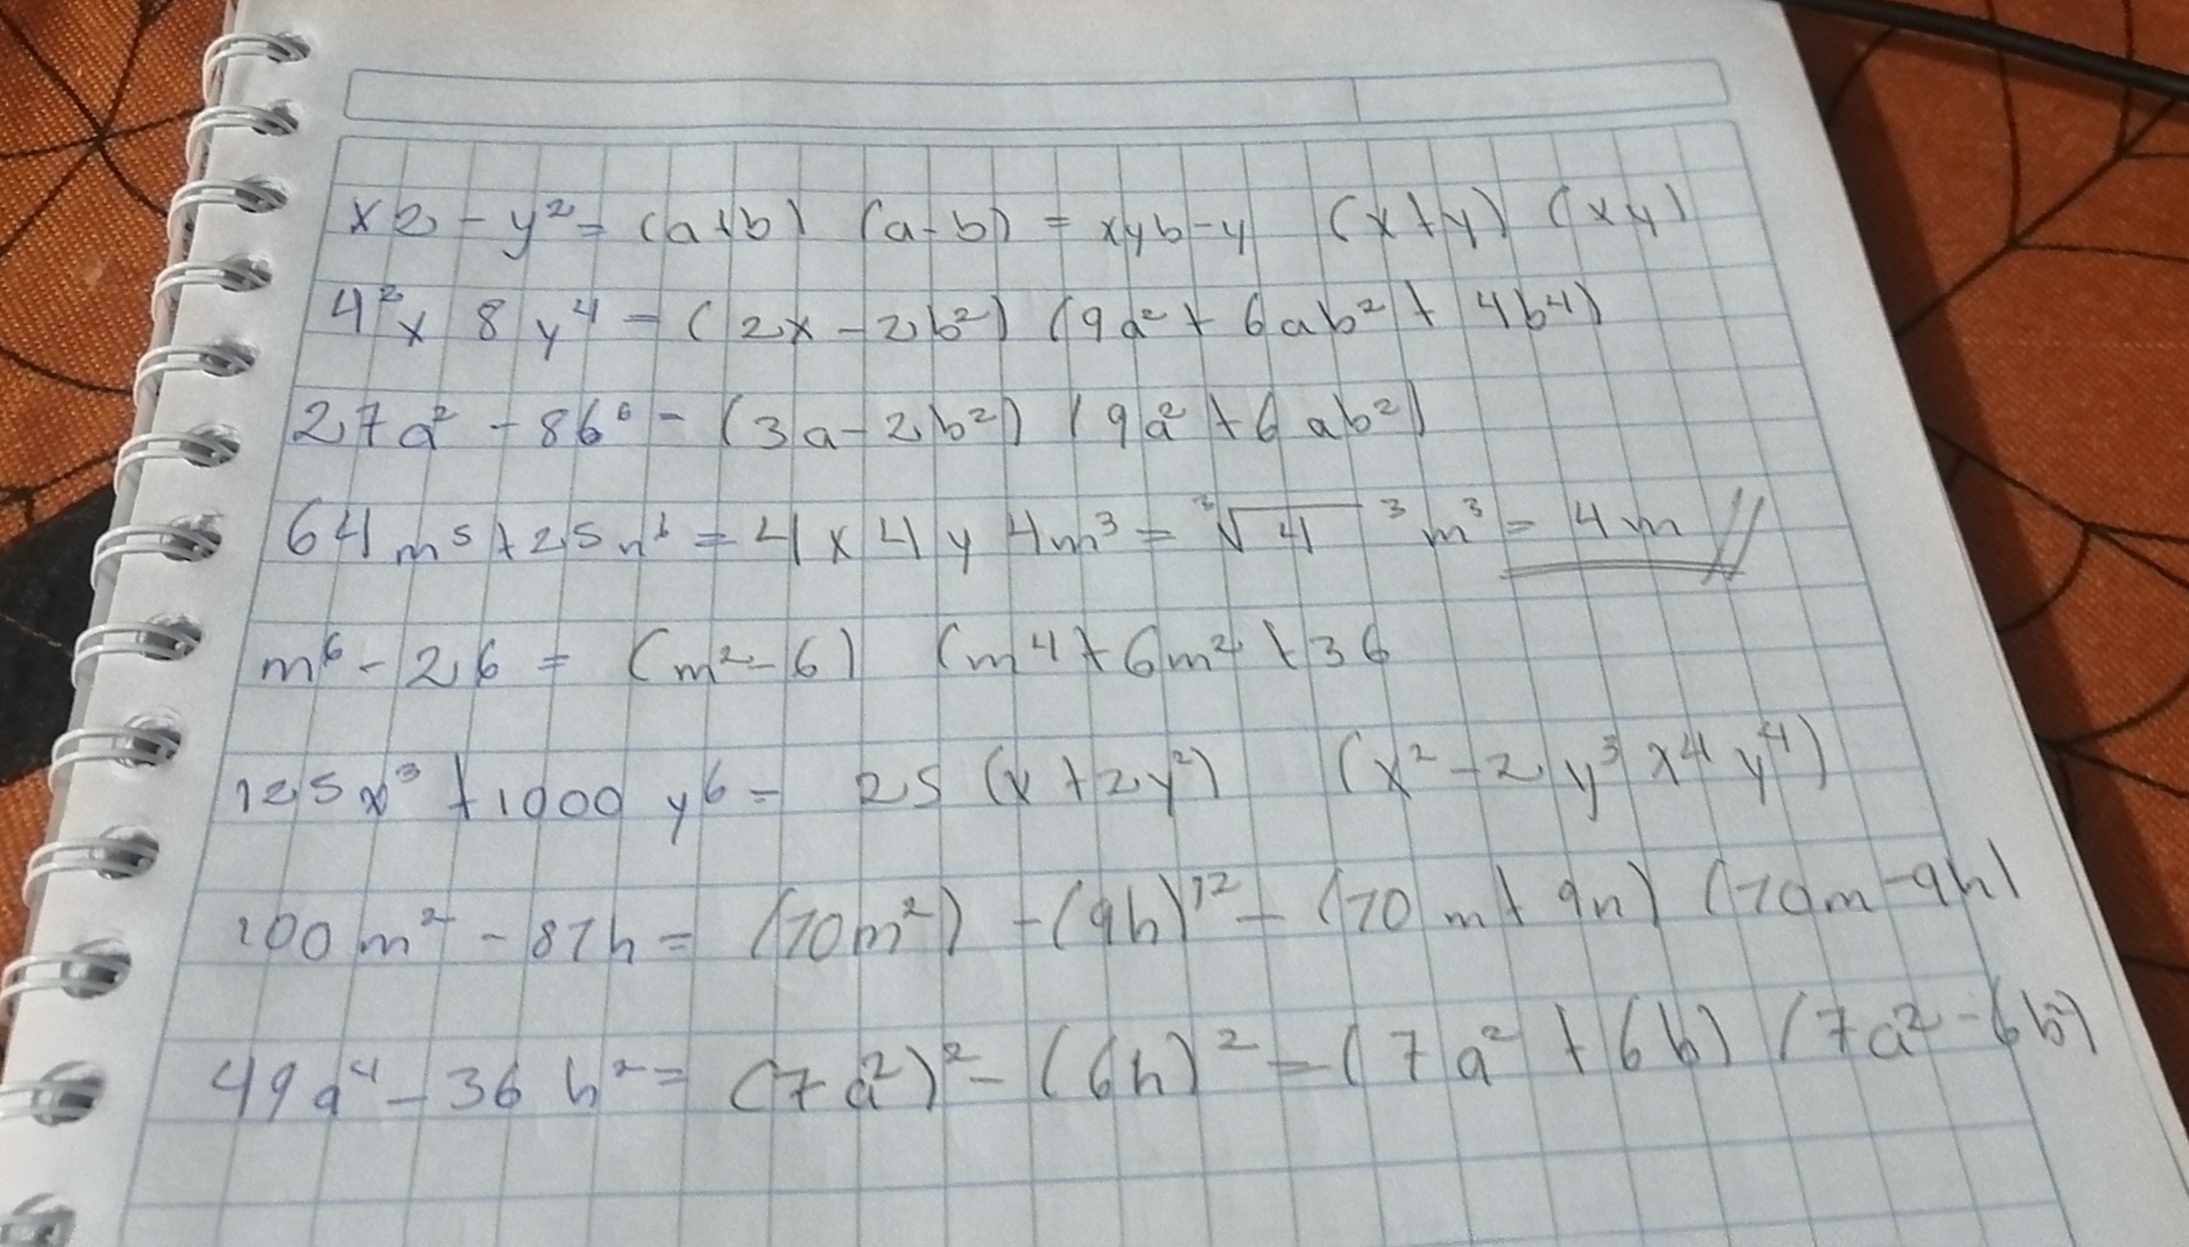 x2 - y² = (a+b) (a-b) = xyb-y (x+y) (xy)
4²x 8y⁴ = (2x - 2b²) (9a² + 6ab² + 4b⁴)
27a² - 86⁶ = (3a - 2b²) (9a² + 6ab²)
64m⁵ + 25n⁶ = 4x4y4m³ = ³√4 ³m³ = 4m //
m⁶ - 26 = (m² - 6) (m⁴ + 6m² + 36
125x³ + 1000y⁶ = 25 (x + 2y²) (x² - 2y³ x⁴ y⁴)
100m² - 87h = (70m²) - (9h)¹² - (70m + 9n) (70m - 9h)
49a⁴ - 36h² = (7a²)² - (6h)² = (7a² + 6b) (7a² - 6b²)